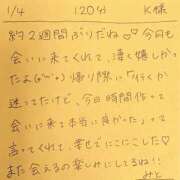 1/4 120分 K様
約2週間ぶりだね♡♡今回も
会いに来てくれて、凄く嬉しかっ
たよ(о´∀`о)帰り際に「行くか
迷ってたけど、今日時間作って
会いに来て本当に良かった」って
言ってくれて、幸せでにこにこ♡
また会えるの楽しみにしてるね!!
みと